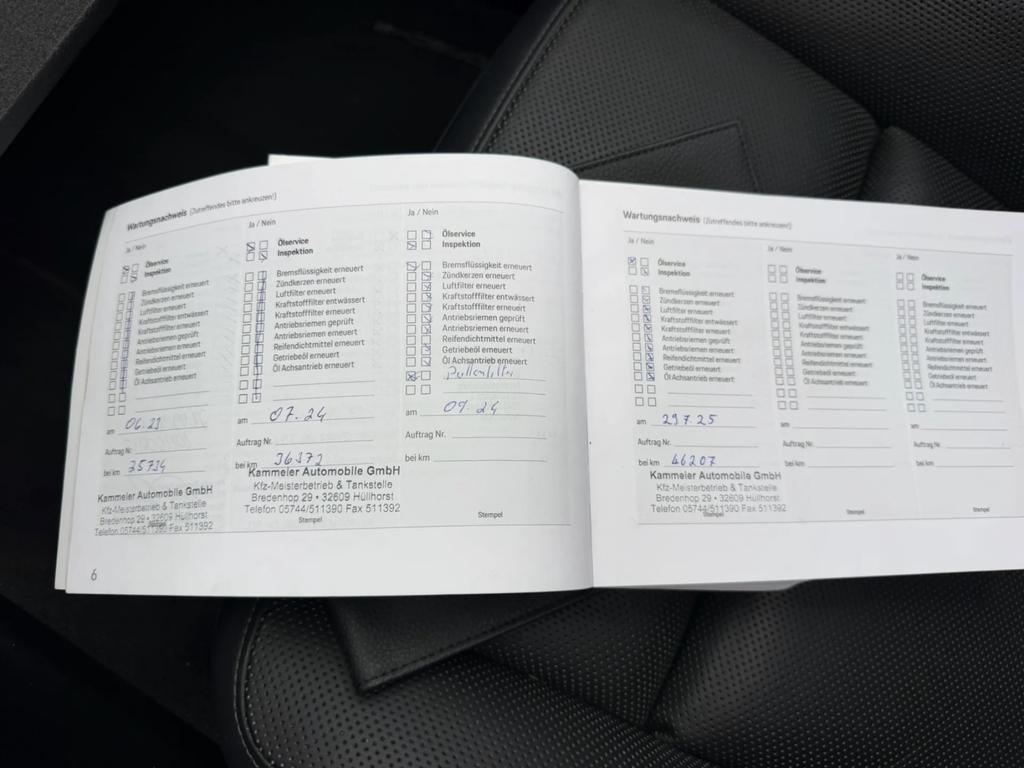 Wartungsnachweis (Zutreffendes bitte ankreuzen!)
Ja / Nein
Ölservice
Inspektion
Bremsflüssigkeit erneuert
Zündkerzen erneuert
Luftfilter erneuert
Kraftstofffilter entwässert
Kraftstofffilter erneuert
Antriebsriemen geprüft
Antriebsriemen erneuert
Reifendichtmittel erneuert
Getriebeöl erneuert
Öl Achsantrieb erneuert
am 06.23
Auftrag Nr.
bei km 35734
Kammeier Automobile GmbH
Kfz-Meisterbetrieb & Tankstelle
Bredenhop 29 • 32609 Hüllhorst
Telefon 05744/511390 Fax 511392
Ja / Nein
Ölservice
Inspektion
Bremsflüssigkeit erneuert
Zündkerzen erneuert
Luftfilter erneuert
Kraftstofffilter entwässert
Kraftstofffilter erneuert
Antriebsriemen geprüft
Antriebsriemen erneuert
Reifendichtmittel erneuert
Getriebeöl erneuert
Öl Achsantrieb erneuert
am 07.24
Auftrag Nr.
bei km 36372
Kammeier Automobile GmbH
Kfz-Meisterbetrieb & Tankstelle
Bredenhop 29 • 32609 Hüllhorst
Telefon 05744/511390 Fax 511392
Stempel
Ja / Nein
Ölservice
Inspektion
Bremsflüssigkeit erneuert
Zündkerzen erneuert
Luftfilter erneuert
Kraftstofffilter entwässert
Kraftstofffilter erneuert
Antriebsriemen geprüft
Antriebsriemen erneuert
Reifendichtmittel erneuert
Getriebeöl erneuert
Öl Achsantrieb erneuert
Pollenfilter
am 09.24
Auftrag Nr.
bei km
Stempel
6
Wartungsnachweis (Zutreffendes bitte ankreuzen!)
Ja / Nein
Ölservice
Inspektion
Bremsflüssigkeit erneuert
Zündkerzen erneuert
Luftfilter erneuert
Kraftstofffilter entwässert
Kraftstofffilter erneuert
Antriebsriemen geprüft
Antriebsriemen erneuert
Reifendichtmittel erneuert
Getriebeöl erneuert
Öl Achsantrieb erneuert
am 29.7.25
Auftrag Nr.
bei km 46207
Kammeier Automobile GmbH
Kfz-Meisterbetrieb & Tankstelle
Bredenhop 29 • 32609 Hüllhorst
Telefon 05744/511390 Fax 511392
Stempel
Ja / Nein
Ölservice
Inspektion
Bremsflüssigkeit erneuert
Zündkerzen erneuert
Luftfilter erneuert
Kraftstofffilter entwässert
Kraftstofffilter erneuert
Antriebsriemen geprüft
Antriebsriemen erneuert
Reifendichtmittel erneuert
Getriebeöl erneuert
Öl Achsantrieb erneuert
am
Auftrag Nr.
bei km
Stempel
Ja / Nein
Ölservice
Inspektion
Bremsflüssigkeit erneuert
Zündkerzen erneuert
Luftfilter erneuert
Kraftstofffilter entwässert
Kraftstofffilter erneuert
Antriebsriemen geprüft
Antriebsriemen erneuert
Reifendichtmittel erneuert
Getriebeöl erneuert
Öl Achsantrieb erneuert
am
Auftrag Nr.
bei km
Stempel